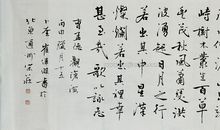 峙樹木叢生百草
豐茂秋風蕭瑟洪
波湧起日月之行
若出其中星漢
燦爛若出其裏幸
甚至哉歌以詠志
曹孟德觀滄海
丙申臘月十五
崔海波書於
北京通州宋莊